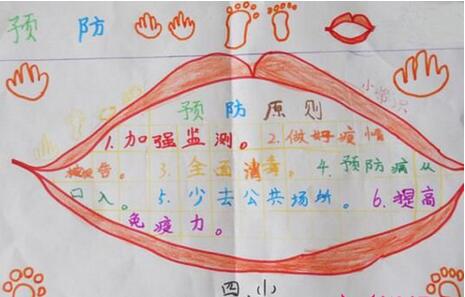 预防
小常识
预防原则
1.加强监测。2.做好疫情
报告。3.全面消毒。4.预防病从
口入。5.少去公共场所。6.提高
免疫力。
四.小